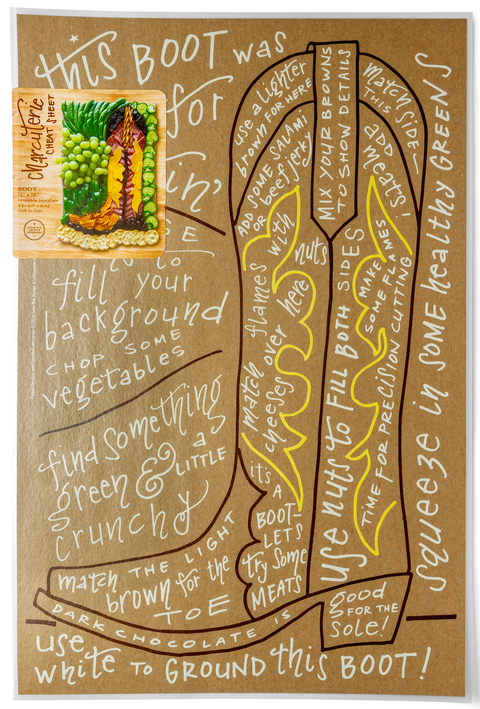 this BOOT was
for
charcuterie
CHEAT SHEET
BOOT
fill your
background
CHOP SOME
vegetables
find something
green & a LITTLE
crunchy
use a lighter
brown FOR HERE
ADD SOME SALAMI
OR beef jerky
MIX YOUR BROWNS
TO SHOW DETAILS
match THIS SIDE—
add
meats!
squeeze in SOME healthy GREENS
match flames with nuts
cheeses over here
use nuts to FILL BOTH SIDES
MAKE SOME FLAMES
TIME FOR PRECISION CUTTING
it's
A
BOOT—
LET'S
try some
MEATS
match THE LIGHT
brown for the
TOE
DARK CHOCOLATE IS
good
FOR THE
Sole!
use
white TO GROUND this BOOT!